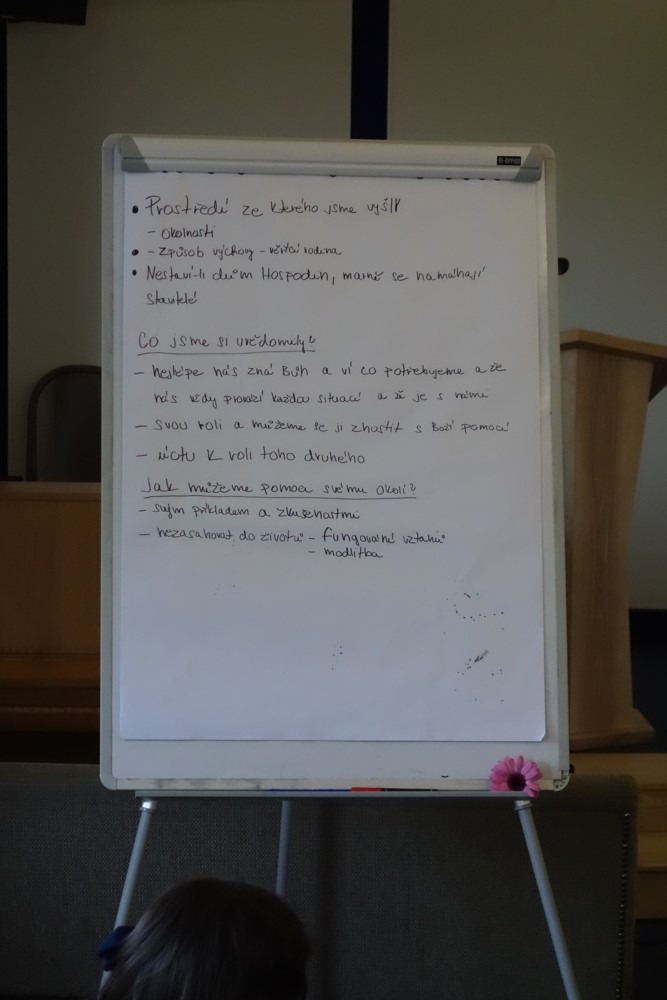 • Prostředí ze kterého jsme vyšli
- okolnosti
• - způsob výchovy - věřící rodina
• Nestaví-li dům Hospodin, marně se namáhají
stavitelé
Co jsme si uvědomily?
- nejlépe nás zná Bůh a ví co potřebujeme a že
nás vždy provází každou situací a že je s námi
- svou roli a můžeme se jí zhostit s Boží pomocí
- úctu k roli toho druhého
Jak můžeme pomoci svému okolí?
- svým příkladem a zkušenostmi
- nezasahovat do životů - fungování vztahů
- modlitba